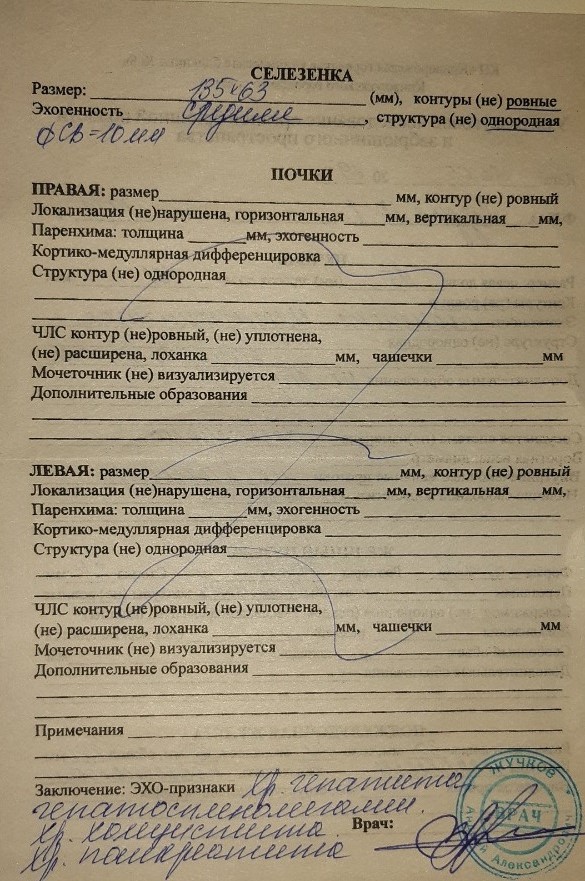 СЕЛЕЗЕНКА
Размер: 135х63 (мм), контуры (не) ровные
Эхогенность средняя, структура (не) однородная
ФСВ=10мм
ПОЧКИ
ПРАВАЯ: размер мм, контур (не) ровный
Локализация (не)нарушена, горизонтальная мм, вертикальная мм,
Паренхима: толщина мм, эхогенность
Кортико-медуллярная дифференцировка
Структура (не) однородная
ЧЛС контур (не)ровный, (не) уплотнена,
(не) расширена, лоханка мм, чашечки мм
Мочеточник (не) визуализируется
Дополнительные образования
ЛЕВАЯ: размер мм, контур (не) ровный
Локализация (не)нарушена, горизонтальная мм, вертикальная мм,
Паренхима: толщина мм, эхогенность
Кортико-медуллярная дифференцировка
Структура (не) однородная
ЧЛС контур (не)ровный, (не) уплотнена,
(не) расширена, лоханка мм, чашечки мм
Мочеточник (не) визуализируется
Дополнительные образования
Примечания
Заключение: ЭХО-признаки хр. гепатита
гепатоспленомегалии.
хр. холецистита
Врач:
хр. панкреатита
ВРАЧ
Александрович